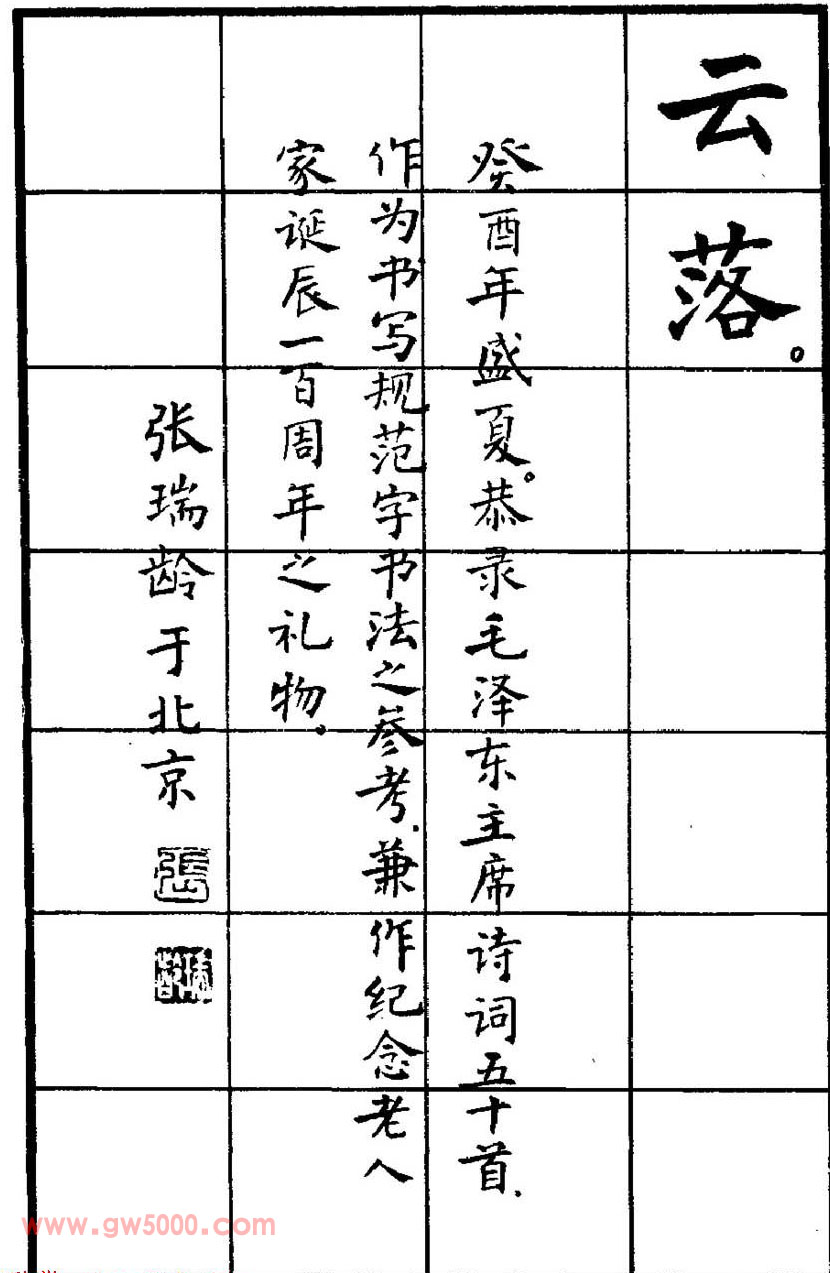 云落。
癸酉年盛夏。恭录毛泽东主席诗词五十首、
作为书写规范字书法之参考、兼作纪念老人
家诞辰一百周年之礼物。
张瑞龄于北京
張
瑞龄
www.gw5000.com